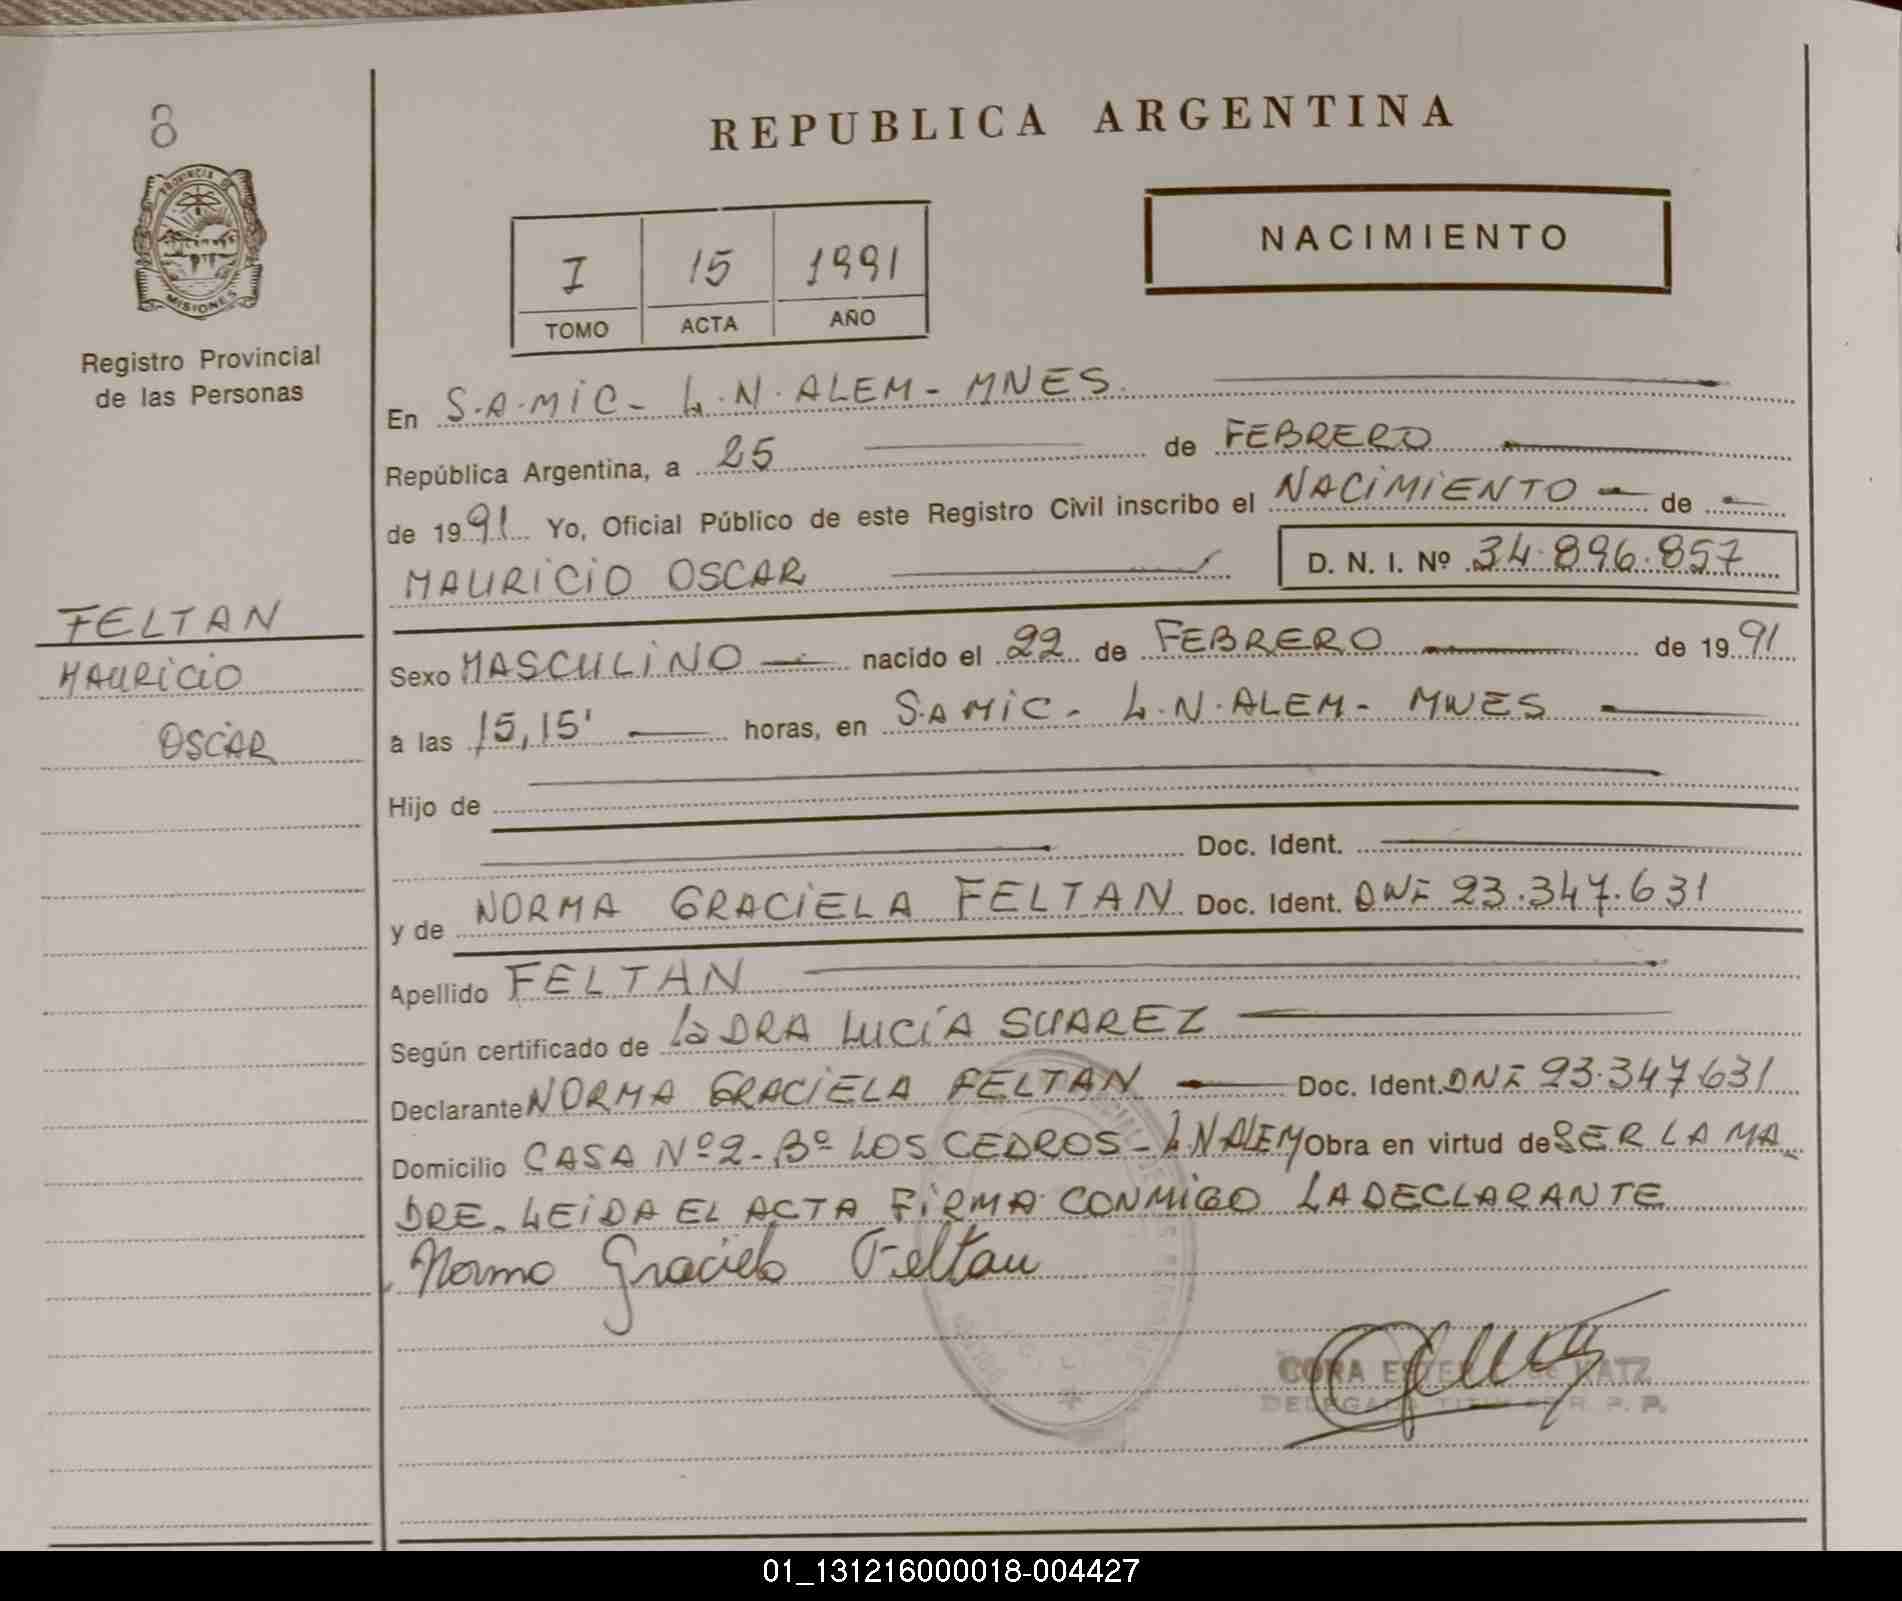 8
PROVINCIA DE
MISIONES
Registro Provincial
de las Personas
FELTAN
MAURICIO
OSCAR
REPUBLICA ARGENTINA
I 15 1991
TOMO ACTA AÑO
NACIMIENTO
En S.A.MIC - L.N.ALEM - MNES.
República Argentina, a 25 de FEBRERO
de 1991 Yo, Oficial Público de este Registro Civil inscribo el NACIMIENTO de
MAURICIO OSCAR D. N. I. Nº 34.896.857
Sexo MASCULINO nacido el 22 de FEBRERO de 1991
a las 15,15' horas, en S.A.MIC - L.N.ALEM - MNES
Hijo de
Doc. Ident.
y de NORMA GRACIELA FELTAN Doc. Ident. DNI 23.347.631
Apellido FELTAN
Según certificado de la DRA LUCÍA SUAREZ
Declarante NORMA GRACIELA FELTAN Doc. Ident. DNI 23.347.631
Domicilio CASA Nº 2 - Bº LOS CEDROS - L.N.ALEM Obra en virtud de SER LA MA
DRE. LEIDA EL ACTA FIRMA CONMIGO LA DECLARANTE
Norma Graciela Feltan
CORA KATZ
R. P. P.
01_131216000018-004427